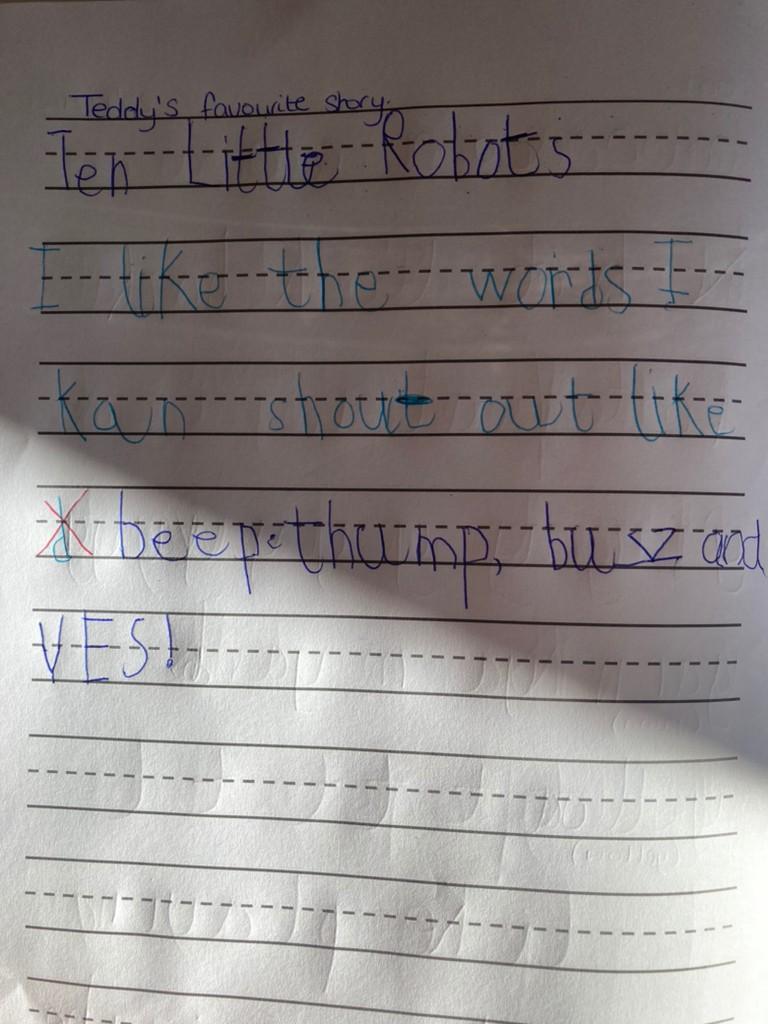 Teddy's favourite story.
Ten Little Robots
I like the words I
kan shout out like
beep thump, buzz and
YES!